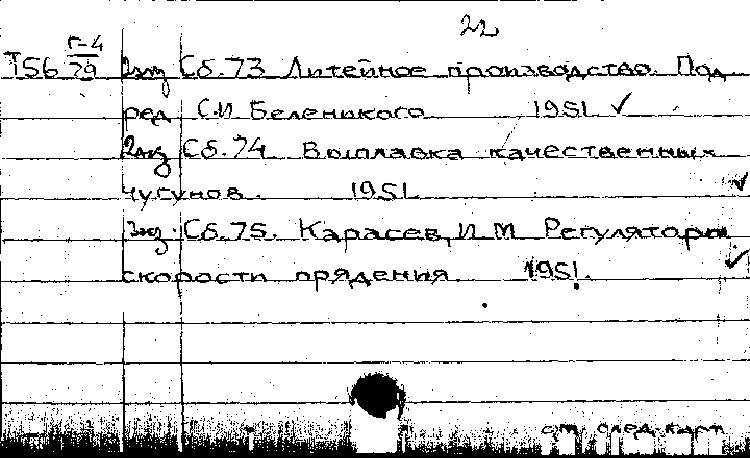 22
Г-4
T56 29 2экз Сб.73 Литейное производство. Под
ред С.И. Беленикого 1951 ✓
2экз Сб.74 Выплавка качественных
чугунов. 1951 ✓
Сб.75. Карасев, И.М. Регуляторы
скорости прядения. 1951. ✓
см. след. карт.